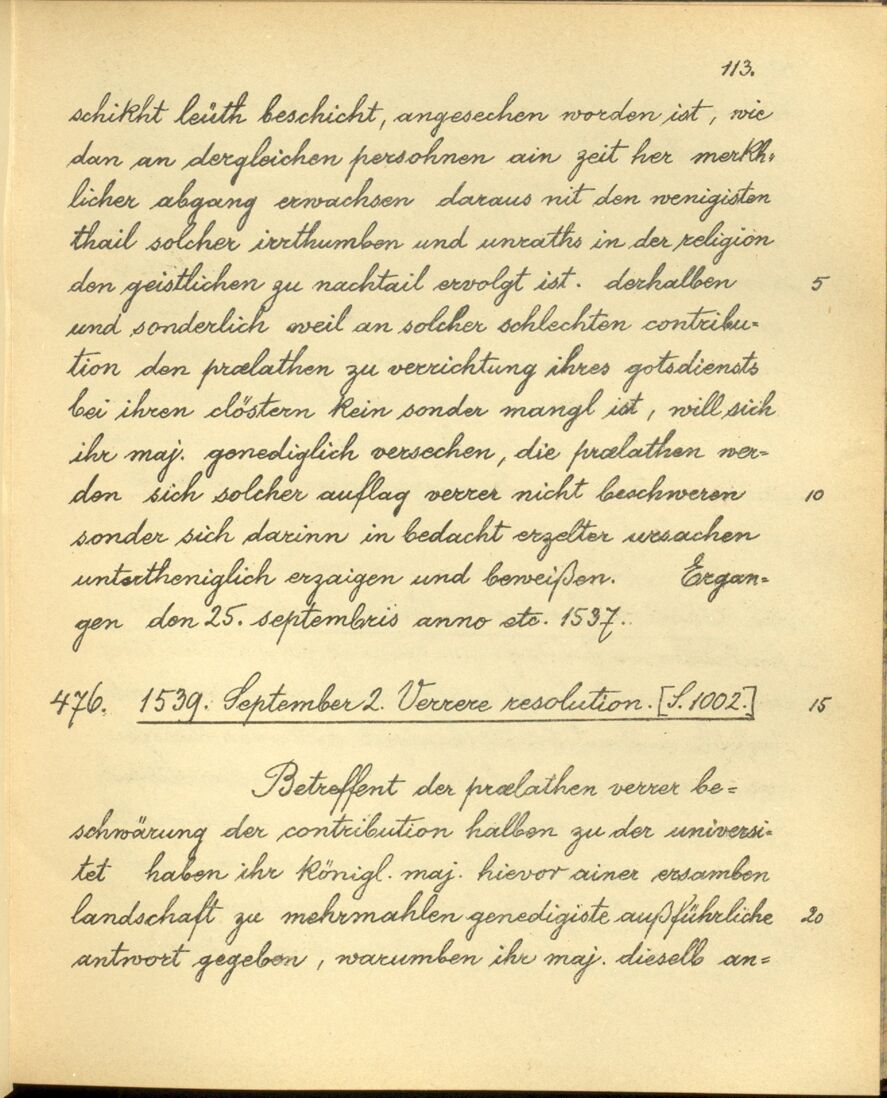 113.
schikht leüth beschicht, angesechen worden ist, wie
dan an dergleichen persohnen ain zeit her merkh=
licher abgang erwachsen daraus nit den wenigisten
thail solcher irrthumben und unraths in der religion
den geistlichen zu nachtail ervolgt ist. derhalben 5
und sonderlich weil an solcher schlechten contribu=
tion den prælathen zu verrichtung ihres gotsdiensts
bei ihren clöstern kein sonder mangl ist, will sich
ihr maj. genediglich versechen, die prælathen wer=
den sich solcher auflag verrer nicht beschweren 10
sonder sich darinn in bedacht erzelter ursachen
untertheniglich erzaigen und beweißen. Ergan=
gen den 25. septembris anno etc. 1537.
476. 1539. September 2. Verrere resolution. [S. 1002.] 15
Betreffent der prælathen verrer be=
schwärung der contribution halben zu der universi=
tet haben ihr königl. maj. hievor ainer ersamben
landschaft zu mehrmahlen genedigiste außführliche 20
antwort gegeben, warumben ihr maj. dieselb an=